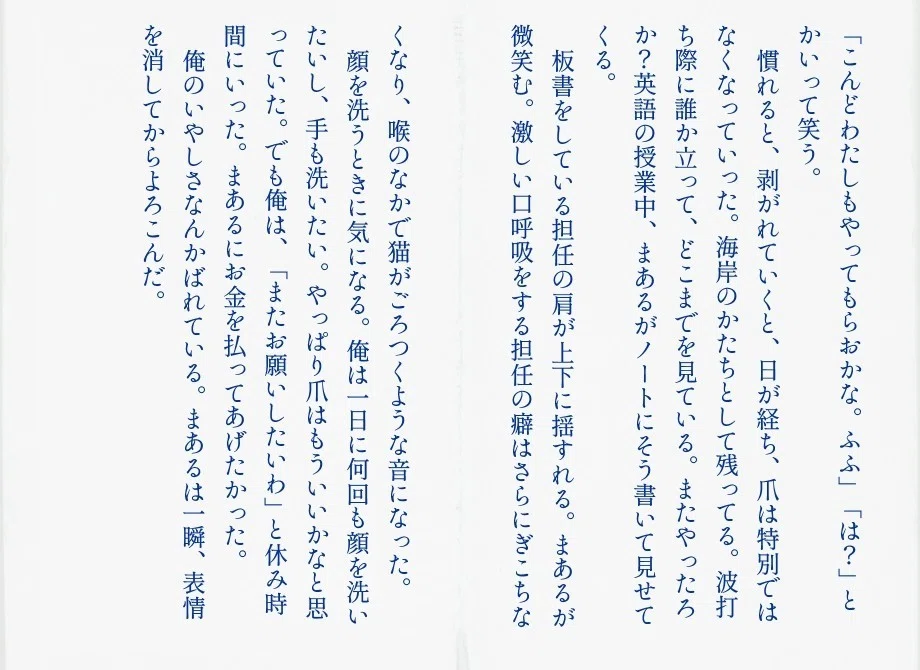 「こんどわたしもやってもらおかな。ふふ」「は？」と
かいって笑う。
　慣れると、剥がれていくと、日が経ち、爪は特別では
なくなっていった。海岸のかたちとして残ってる。波打
ち際に誰か立って、どこまでを見ている。またやったろ
か？英語の授業中、まあるがノートにそう書いて見せて
くる。
　板書をしている担任の肩が上下に揺すれる。まあるが
微笑む。激しい口呼吸をする担任の癖はさらにぎこちな
くなり、喉のなかで猫がごろつくような音になった。
　顔を洗うときに気になる。俺は一日に何回も顔を洗い
たいし、手も洗いたい。やっぱり爪はもういいかなと思
っていた。でも俺は、「またお願いしたいわ」と休み時
間にいった。まあるにお金を払ってあげたかった。
　俺のいやしさなんかばれている。まあるは一瞬、表情
を消してからよろこんだ。